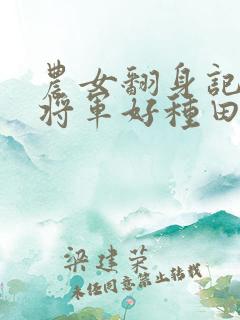 農女翻身記
將軍好種田
梁建荣
未经同意禁止转载